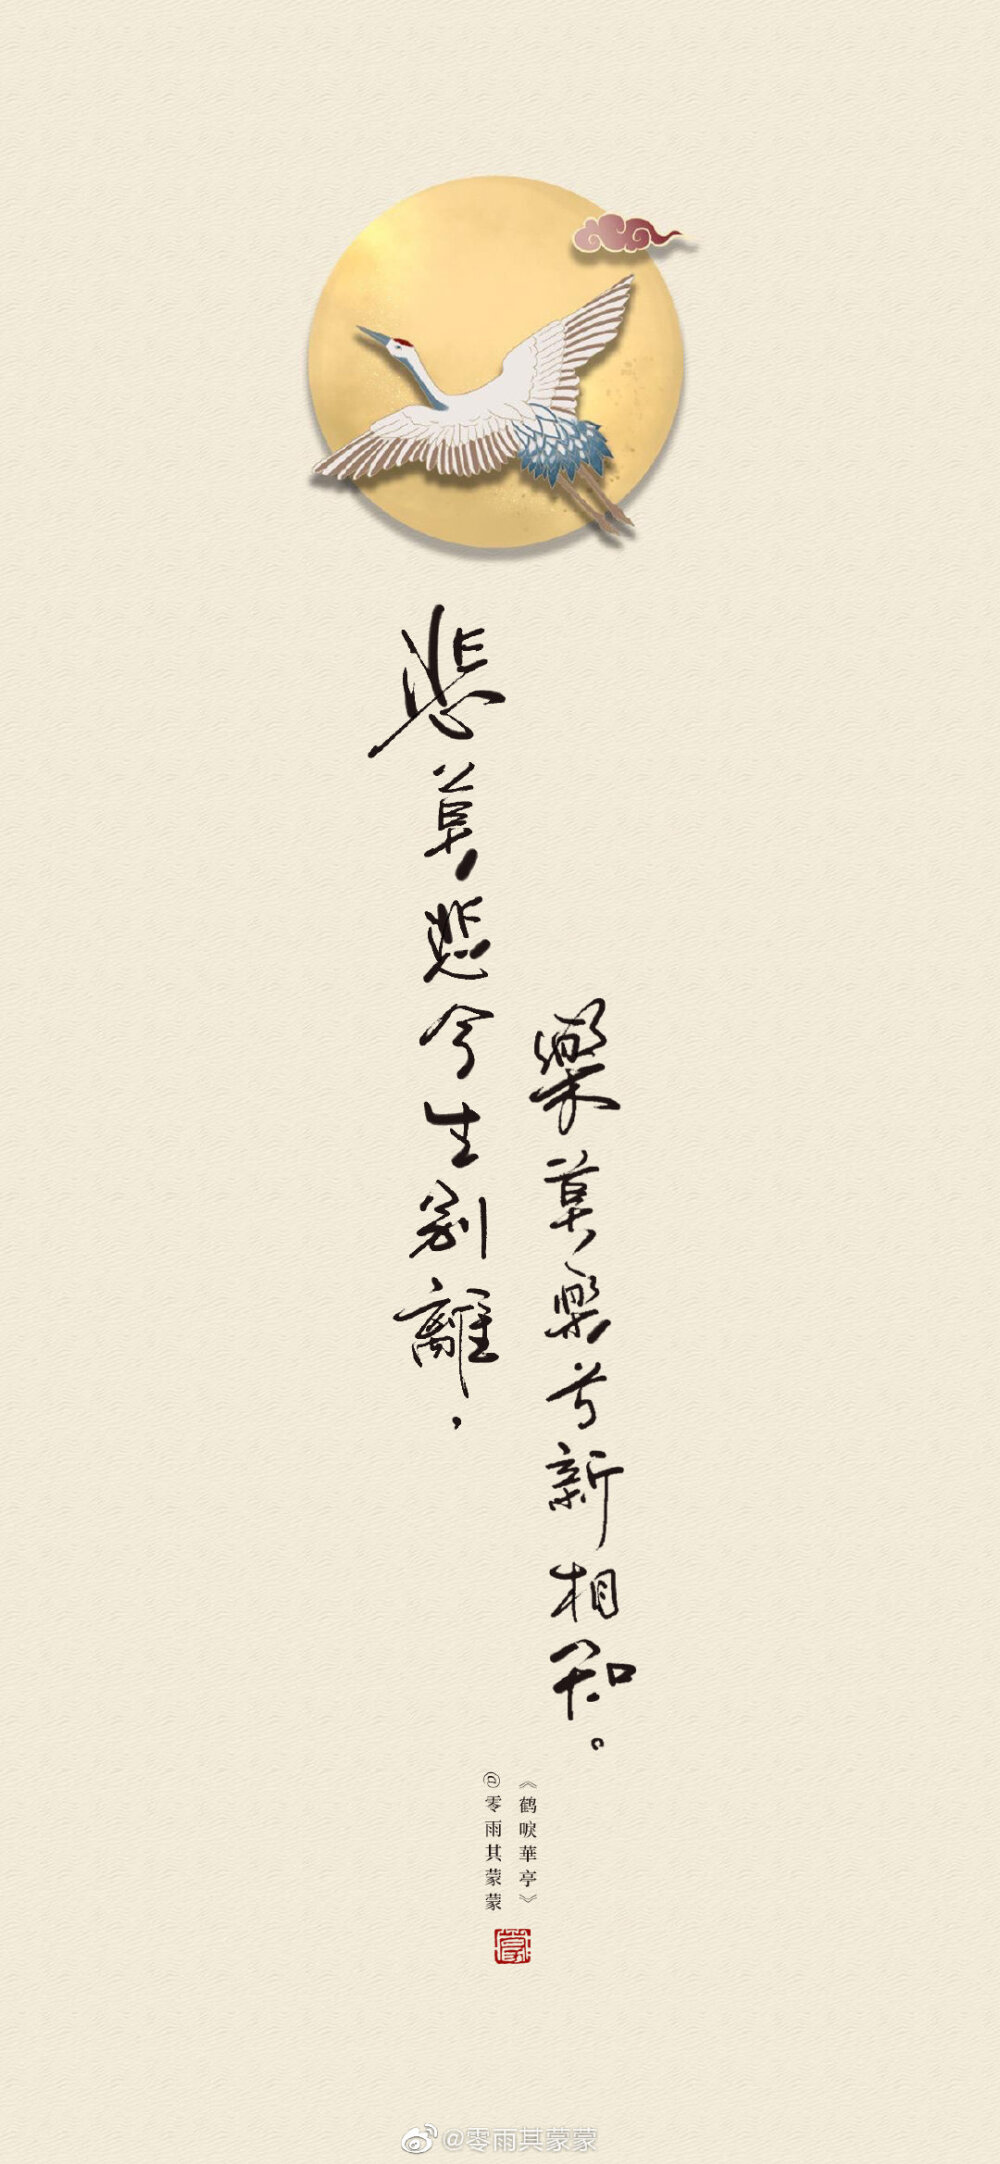 悲莫悲兮生别離，
樂莫樂兮新相知。
《鹤唳華亭》
@零雨其蒙蒙
@零雨其蒙蒙